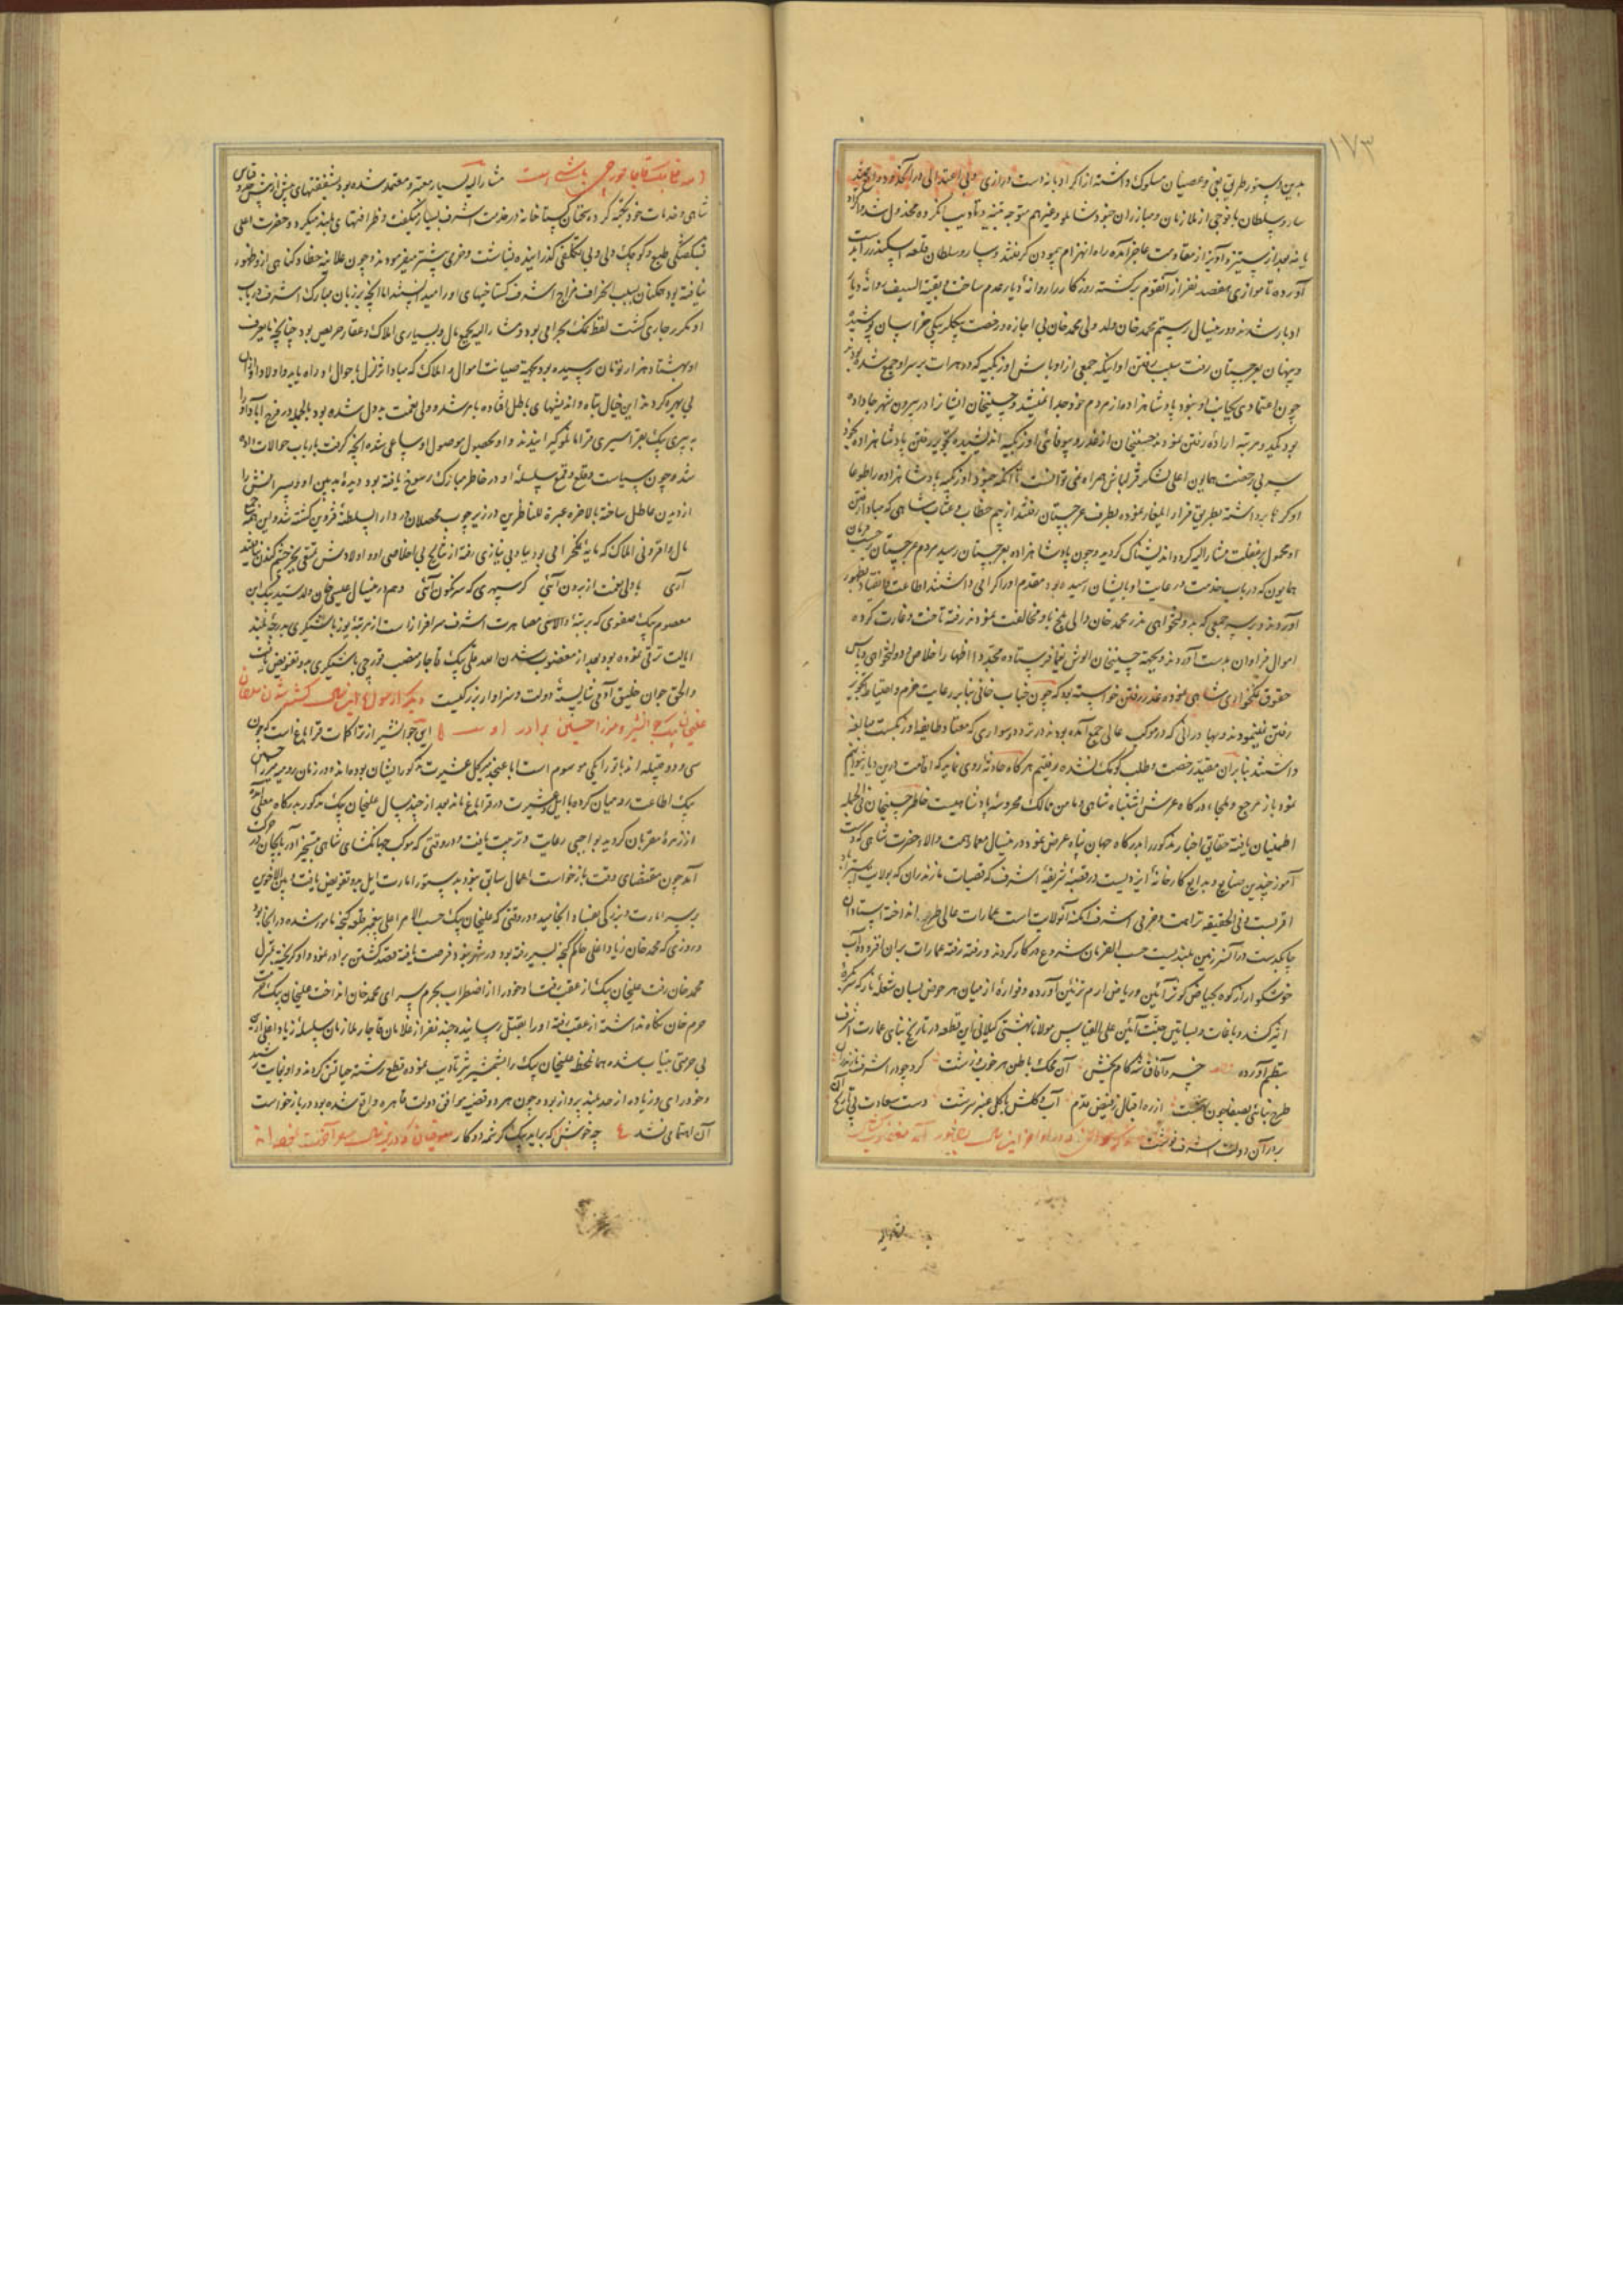 ۱۷۳
بدین دستور طریق بغی و عصیان مسلوک داشته از اکراد بانه دست درازی و بی اعتدالی در آنحدود واقع میشد
سارو سلطان با فوجی از ملازمان و مبارزان خود متوجه تنبیه و تأدیب آنگروه مخذول شد و اکراد
بانه بعد از ستیز و آویز از مقاومت عاجز آمده راه انهزام پیمودن گرفتند و سارو سلطان قلعه
آورده تا موازی هفتصد نفر از آنقوم برگشته روزگار را روانهٔ دیار عدم ساخت و بقیة السیف روانهٔ دیار
ادبار شدند و در ینسال رستم محمد خان ولد ولی محمد خان بی اجازه و رخصت بیگلربیگی خراسان پوشیده
و پنهان بغرجستان رفت سبب رفتن او اینکه جمعی از اوباش اوزبکیه که در هرات بر سر او جمع شده بودند
چون اعتمادی بجانب او نبود پادشاهزاده از مردم خود جدا نمیشد و حسینخان ایشان را در بیرون شهر جا داده
بود یکدو مرتبه اراده رفتن نمودند حسینخان از غدر و بیوفائی اوزبکیه اندیشیده تجویز رفتن پادشاهزاده نمیکرد
بی رخصت همایون اعلی لشکر قزلباش همراه نمی توانست تا آنکه جنود اوزبکیه پادشاهزاده را طوعا
او کرها برداشته بطریق فرار ایلغار نموده بطرف غرجستان رفتند از بیم خطاب و عتاب شاهی که مبادا رفتن
او محمول بغفلت مشارالیه کردد اندیشناک گردید و چون پادشاهزاده بغرجستان رسید مردم غرجستان حسب الفرمان
همایون که در باب خدمت و رعایت او بایشان رسیده بود مقدم او را گرامی داشتند اطاعت و انقیاد بظهور
آوردند و بر سر جمعی که بدولتخواهی نذر محمد خان والی بلخ با او مخالفت نمودند رفته تاخت و غارت کرده
اموال فراوان بدست آوردند و بجهة حسینخان الوش یغما فرستاده مجددا اظهار اخلاص و دولتخواهی و پاس
حقوق نمکخواری شاهی نموده عذر رفتن خواسته بود که چون جناب خانی بنابر رعایت حزم و احتیاط تجویز
رفتن نمینمودند و بهادرانی که در موکب عالی جمع آمده بودند در تردد و سواری که معتاد طایفه اوزبکست مبالغه
داشتند بنابر آن مقید رخصت و طلب کومک نشده رفتیم هر گاه حادثه روی نماید که اقامت درین دیار نتوانیم
نمود باز مرجع و ملجاء درگاه عرش اشتباه شاهی و مأمن ممالک محروسهٔ پادشاهیست خاطر حسینخان فی الجمله
اطمینان یافته حقایق اخبار مذکور را بدرگاه جهان پناه عرض نمود و در ینسال معمار همت والاء حضرت شاهی که دست
آموز چندین صنایع و بدایع کارخانهٔ ایزدیست در قصبهٔ شریفهٔ اشرف که قصبات مازندران که بولایت استرآباد
اقربست و فی الحقیقه نزاهت و خرمی اشرف امکنه آنولایت است عمارات عالی طرح انداخته استادان
چابکدست در آن سرزمین بلند بست حسب الفرمان شروع در کار کردند و رفته رفته عمارات بر آن افزوده آب
خوشگوار از کوه بحیاض کوثر آئین و ریاض ارم تزئین آورده و فواره از میان هر حوض بسان شعله نار که بکره
اثیر کشد و باغات و بساتین جنت آئین علی القیاس مولانا بهشتی گیلانی این قطعه در تاریخ بنای عمارت اشرف
بنظم آورده خسرو آفاق شه کام بخش آن محک باطن هر خوب و زشت کرد چو در اشرف مازندران
طرح بنائی بصفا چون بهشت از ره اقبال ز فیض مقدم آب و گلش با گل عنبر سرشت دست سعادت پی تاریخ آن
بر در آن دولت اشرف نوشت
مشارالیه بسیار معتبر و معتمد شده بود بشفقتهای بیش از پیش
شاهی و خدمات خود تکیه کرده سخنان گستاخانه در خدمت اشرف بسیار میگفت و ظرافتهای بلند میکرد و حضرت اعلی
طبع و کوچک دلی و بی تکلفی گذرانیده بشاشت و خرمی بیشتر میفرمودند و چون علانیه خطا و گناهی ازو ظهور
نیافته بود همگنان بسبب انحراف مزاج اشرف گستاخیهای او را میدانستند اما آنچه بر زبان مبارک اشرف در باب
او مکرر جاری گشت لفظ نمک بحرامی بود و مشارالیه بجمع مال و بسیاری املاک و عقار حریص بود چنانچه
او بهشتاد هزار تومان رسیده بود بجهة صیانت اموال و املاک که مبادا تزلزل باحوال او راه یابد و اولاد او از آن
بی بهره گردند این خیال تباه و اندیشهای باطل افتاده و ولی نعمت بد دل شده بود بالجمله در فرح آباد او را
شد و چون سیاست و قلع و قمع سلسلهٔ او در خاطر مبارک رسوخ یافته بود دیدهٔ بدبین او و پسرانش را
از دیدن عاطل ساخته بالاخره عبرة للناظرین در زیر چوب محصلان در دار السلطنهٔ قزوین کشته شد و این همه
مال وافر و نی املاک که مایه تکبر او می بود بباد بی نیازی رفته از نتایج بی اخلاصی او و اولادش
آری با ولی نعمت از برون آئی گر سپهری که سرنگون آئی و هم در ینسال عیسی خان ولد سید بیک بن
معصوم بیک صفوی که برتبهٔ والای مصاهرت اشرف سرافراز است از مرتبهٔ یوزباشیگری بدرجهٔ بلند
ایالت ترقی نموده بود بعد از مغضوب شدن امیر قلی بیک قاجار منصب قورچی باشیگری بدو تفویض یافت
والحق جوان خلیق آدمی شایستهٔ دولت و سزاوار بزرگیست دیگر از سوانح این سال کشته شدن علیخان
علیخان بیک جوانشیر و میرزا حسین برادر اوست ایل جوانشیر از تراکمات قراباغ است که چون
سی و دو قبیله اند باتوز ایکی موسوم است ابا عن جد میر کل عشیرت مذکور ایشان بوده اند و در زمان رومیه میرزا حسین
بیک اطاعت رومیان کرده با ایل و عشیرت در قراباغ ماند بعد از چند سال علیخان بیک مذکور بدرگاه معلی آمده
از زمرهٔ مقربان گردید بواجبی رعایت و تربیت یافت و در وقتی که موکب جهانگشای شاهی بتسخیر آذربایجان در حرکت
آمد چون مقتضای وقت بازخواست اعمال سابق نبود بدستور امارت ایل بدو تفویض یافت و بین الاخوین
بر سر امارت و بزرگی بفساد انجامید و در وقتی که علیخان بیک حسب الامر اعلی بتعمیر قلعه گنجه مامور شده در آنجا بود
و روزی که محمد خان زیاد اغلی حاکم گنجه بسیر رفته بود در شهر نبود فرصت یافته قصد کشتن برادر نمود و او گریخته بمنزل
محمد خان رفت علیخان بیک از عقب رفت او خود را از اضطراب بحرم سرای محمد خان انداخت علیخان بیک حرمت
حرم خان نگاه نداشته از عقب رفته او را بقتل رسانید و چند نفر از غلامان قاجار ملازمان سلسلهٔ زیاد اغلی ازین
بی حرمتی بیتاب شده همانلحظه علیخان بیک را بشمشیر تیز تأدیب نموده قطع رشته حیاتش کردند و او بغایت رشید
و خود رای و زیاده از حد بلند پرواز بود و چون هر دو قضیه موافق دولت قاهره واقع شده بود در بازخواست
آن اهتمامی نشد ع چه خوش بود که برآید بیک کرشمه دو کار